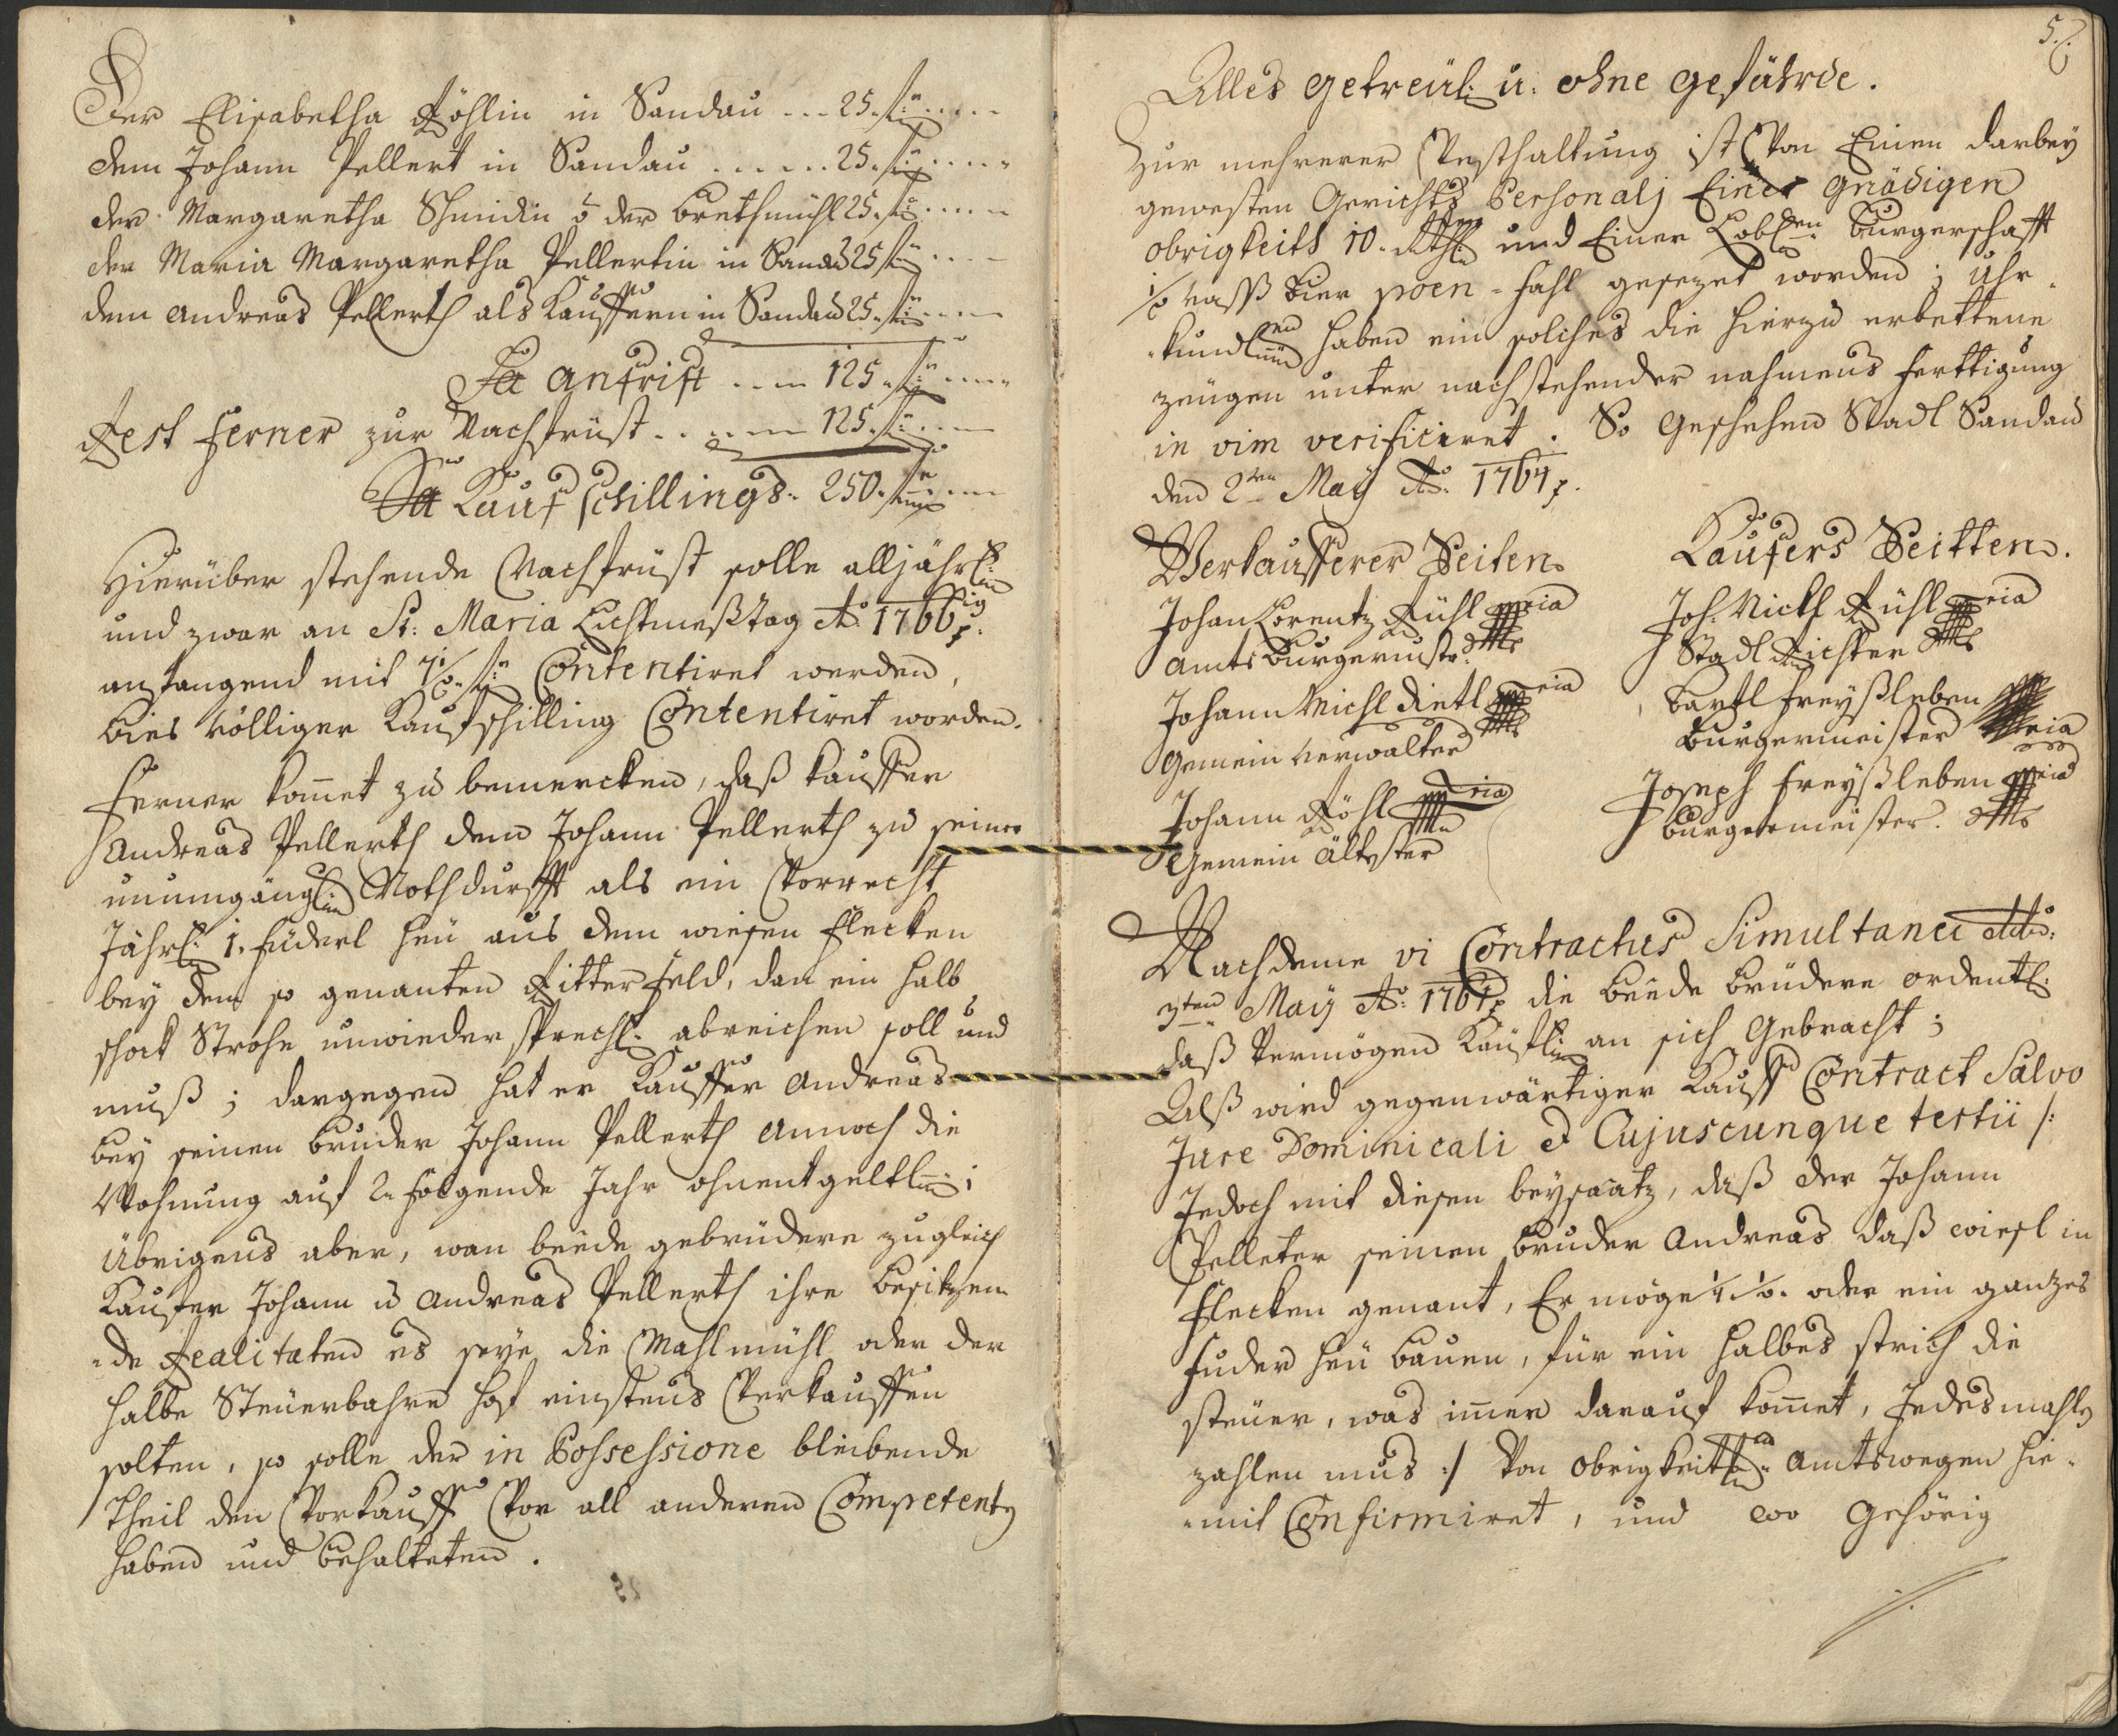 Der Elisabetha Röhlin in Sandau ... 25. f
dem Johann Pellert in Sandau ...... 25. f
der Margaretha Schmidin der Brethmühl 25. f
der Maria Margaretha Pellertin in Sandau 25 f
dem Andreas Pellerth als Kauffern in Sandau 25. f
Sa Anfrist .... 125. f
Rest ferner zur Nachfrüst ..... 125. f
Sa Kaufschillings. 250. f
Hierüber stehende Nachfrüst solle alljährl:
und zwar an St: Maria Lichtmeßtag Ao: 1766
anfangend mit f Contentiret werden,
bies völliger Kaufschilling Contentiret worden.
Ferner kom̄et zu bemercken, daß Kauffer
Andreas Pellerth dem Johann Pellerth zu seiner
unumgängl: Nothdurfft als ein Vorrecht
Jährl: 1. Füderl Heu aus dem wiesen Flecken
bey dem so genanten Ritterfeld, dan ein halb
schock Strohe unwiedersprechl: abreichen soll und
muß; dargegen hat er Kauffer Andreas
bey seinen bruder Johann Pellerth annoch die
Wohnung auf 2. folgende Jahr ohnentgeltl:;
übrigens aber, wan beede gebrüdere zugleich
Kaufer Johann u Andreas Pellerth ihre besitzen-
-de Realitaten es seye die Mahlmühl oder der
halbe Steuerbahre Hof einstens Verkauffen
solten, so solle der in Possessione bleibende
Theil den Vorkauff Vor all anderen Competenten
haben und behalteten.
5.
Alles getreül: u: ohne gefährde.
Zur mehrerer Vesthaltung ist Von Einen darbey
gewesten Gerichts Personalj Einer gnädigen
obrigkeith 10. Rthl: und Einer Lobl: Burgerschafft
1/2 Vasß Bier poen-fahl gesezet worden; Uhr-
-kundl: haben ein solches die hierzu erbettene
zeugen unter nachstehender nahmens ferttigung
in vim verificiret. So Geschehen Stadl Sandau
den 2ten May Ao: 1764.
Verkaufferer Seiten.
Johan Lorentz Rühl mpria
Amts Burgermstr:
Johann Michl Dietl mpria
Gemein Verwalter
Johann Röhl mpria
Gemein ältester
Kaufers Seitten.
Joh: Nickl Rühl mpria
Stadl Richter
Bartl Freyßleben
Burgermeister mpria
Joseph Freyßleben mpria
Burgermeister.
Nachdeme vi Contractus Simultanei
May Ao: 1764 die beede brüdere ordentl:
daß Vermögen Käufl: an sich Gebracht;
Alß wird gegenwärtiger Kauff Contract Salvo
Jure Dominicali et Cujuscunque tertii /:
Jedoch mit diesen beysaatz, daß der Johann
Pelleter seinen bruder Andreas daß wiesl in
Flecken genant, Er möge 1/4 1/2. oder ein ganzes
Fuder Heu bauen, für ein halbes strich die
steuer, was im̄er darauf kom̄et, Jedesmahls
zahlen mus :/ Von obrigkeitl: Amtswegen hie-
-mit Confirmiret, und wo Gehörig